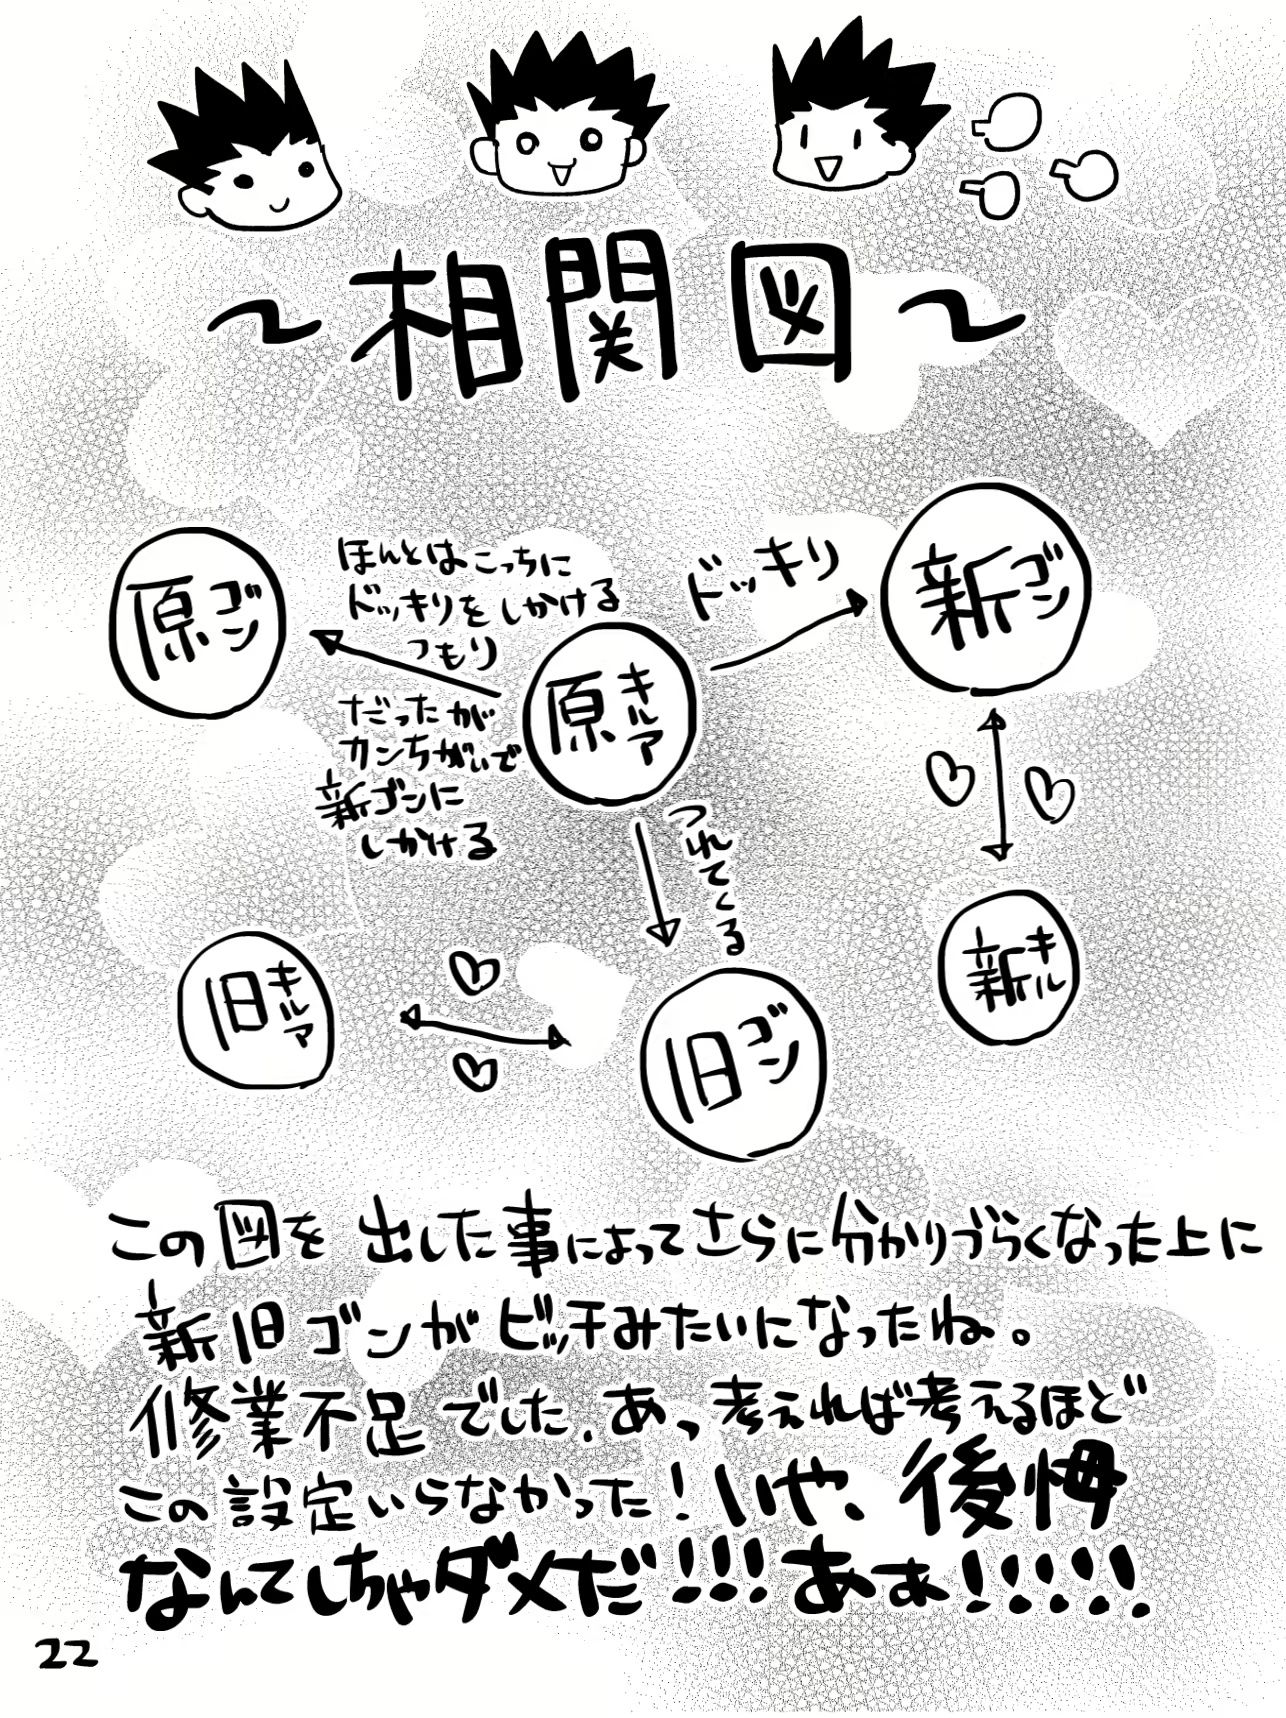 ~相関図~
原ゴン
ほんとはこっちに
ドッキリをしかける
つもり
だったが
カンちがいで
新ゴンに
しかける
原キルア
ドッキリ
新ゴン
つれてくる
旧キルア
旧ゴン
新キル
この図を出した事によってさらに分かりづらくなった上に
新旧ゴンがビッチみたいになったね。
修業不足でした、あっ考えれば考えるほど
この設定いらなかった!いや、後悔
なんてしちゃダメだ!!!ああ!!!!!
22